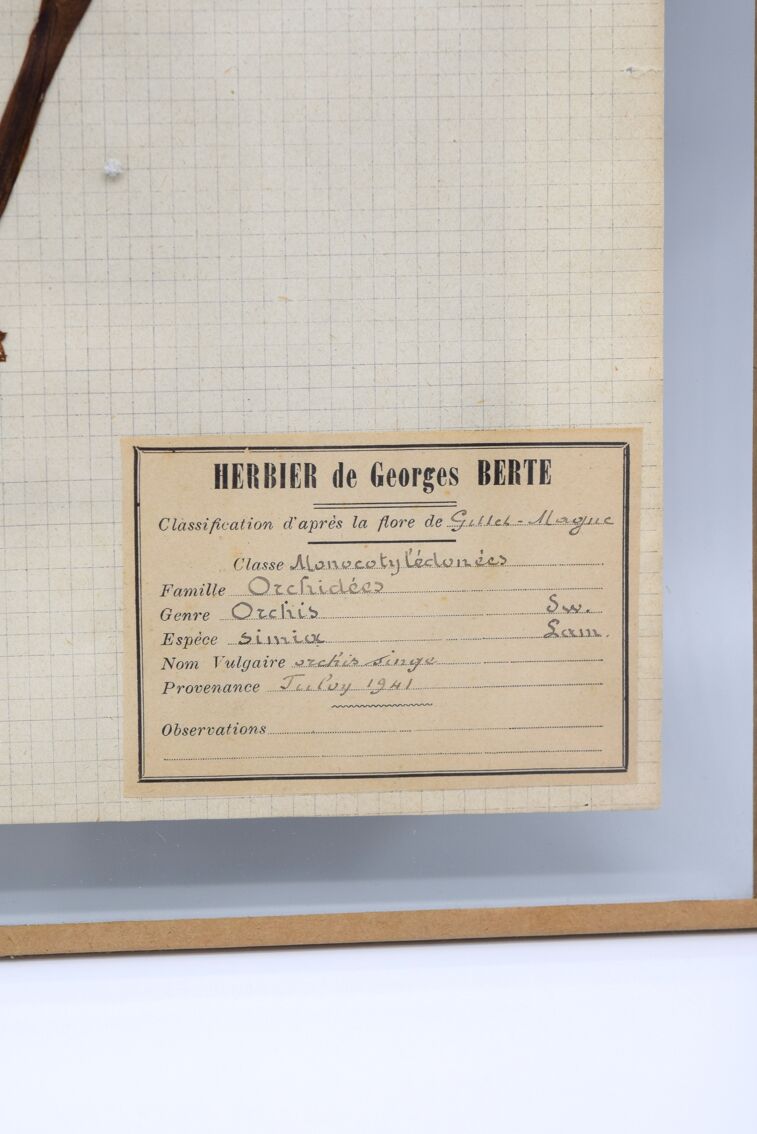 HERBIER de Georges BERTE
Classification d'après la flore de Gillet-Magne
Classe Monocotylédonées
Famille Orchidées
Genre Orchis Sw.
Espèce simia Lam.
Nom Vulgaire orchis singe
Provenance 1941
Observations